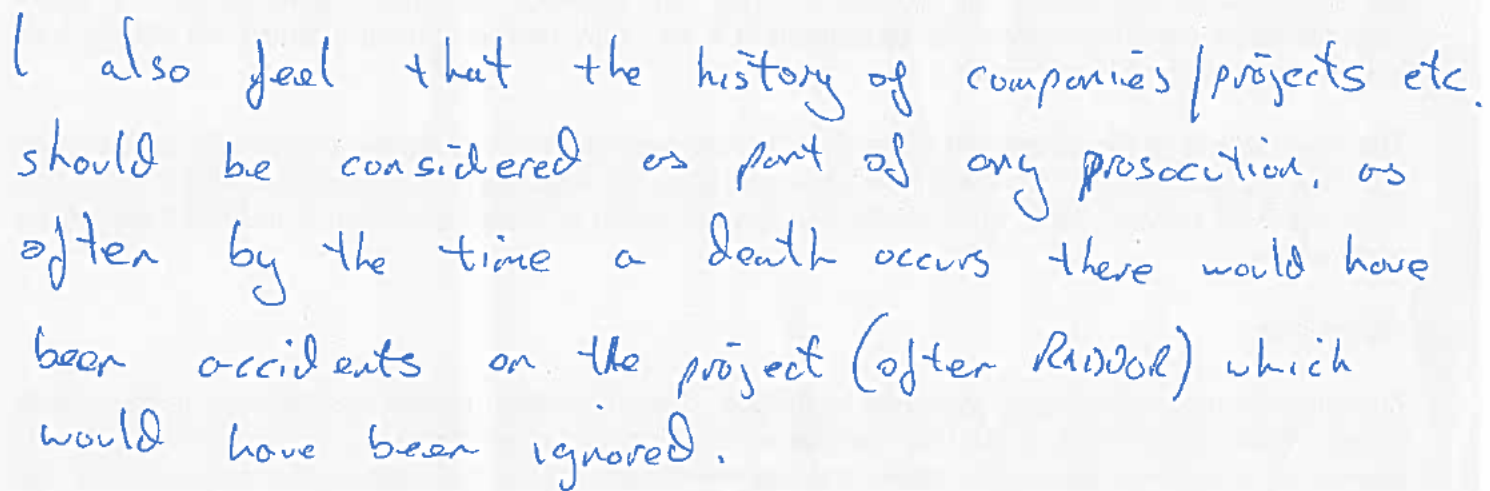 I also feel that the history of companies/projects etc.
should be considered as part of any prosocution, as
often by the time a death occurs there would have
been accidents on the project (often RIDDOR) which
would have been ignored.